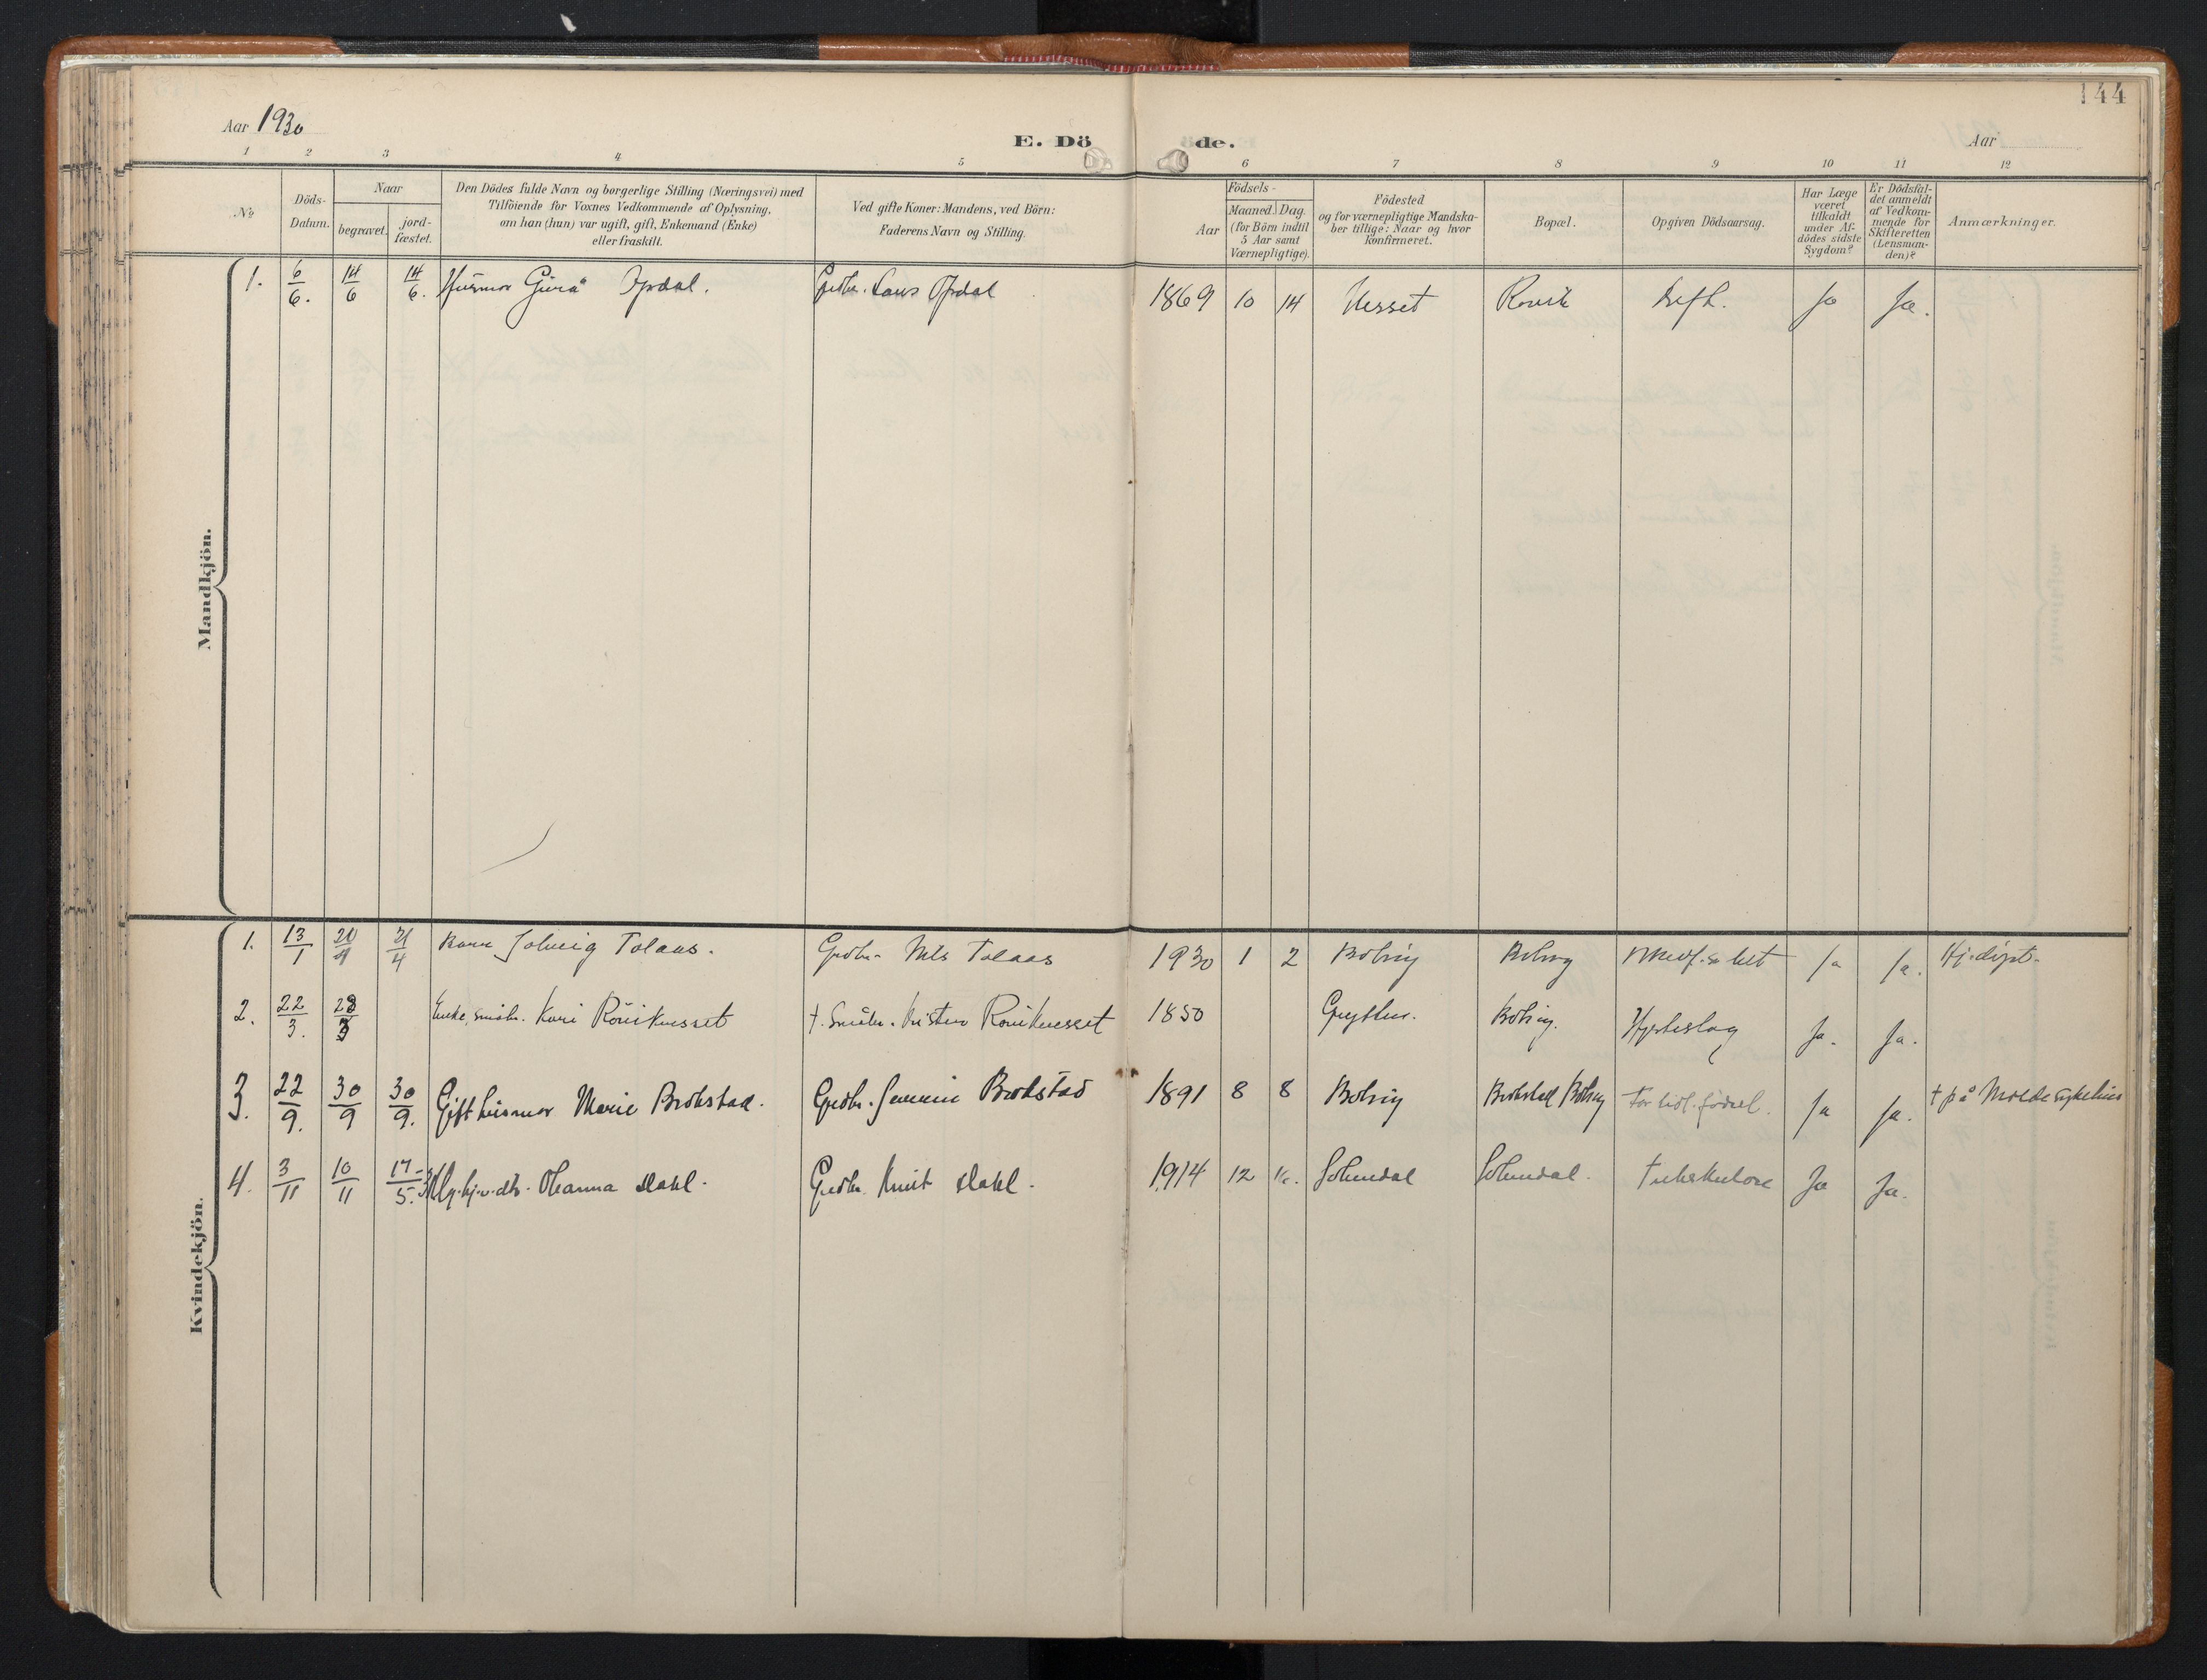 144
Aar 1930
E. Dö
de.
Aar
1 2 3 4 5 6 7 8 9 10 11 12
No
Döds-
Datum.
Naar
begravet.
jord-
fæstet.
Den Dödes fulde Navn og borgerlige Stilling (Næringsvei) med
Tilföiende for Voxnes Vedkommende af Oplysning,
om han (hun) var ugift, gift, Enkemand (Enke)
eller fraskilt.
Ved gifte Koner: Mandens, ved Börn:
Faderens Navn og Stilling.
Aar
Födsels-
Maaned. Dag.
(for Börn indtil
5 Aar samt
Værnepligtige).
Födested
og for værnepligtige Mandska-
ber tillige: Naar og hvor
konfirmeret.
Bopæl.
Opgiven Dödsaarsag.
Har Læge
været
tilkaldt
under Af-
dödes sidste
Sygdom?
Er Dödsfal-
det anmeldt
af Vedkom-
mende for
Skifteretten
(Lensman-
den)?
Anmærkninger.
Mandkjön.
1. 6/6. 14/6 14/6. Husmor Gura Opdal. Grdbr. Lars Opdal 1869 10 14 Nesset Rovik Ja Ja.
Kvindekjön.
1. 13/1 21/4 Barn Solveig Tolaas. Grdbr. Nils Tolaas 1930 1 2 Bolsøy Bolsøy Ja Ja. Hj.døpt.
2. 22/3. 28/3 Enke, småbr. Kari Röviknesset †. Småbr. Kristen Röviknesset 1850 Grytten. Bolsøy. Hjerteslag Ja. Ja.
3. 22/9. 30/9 30/9. Gift husmor Marie Brokstad. Grdbr. Brokstad 1891 8 8 Bolsøy Brokstad Bolsøy For tidl. födsel. Ja Ja. † på Molde sykehus
4. 3/11 10/11 17/5. Oleanna Dahl. Grdbr. Knut Dahl. 1914 12 Solemdal Solemdal. Tuberkulose Ja Ja.